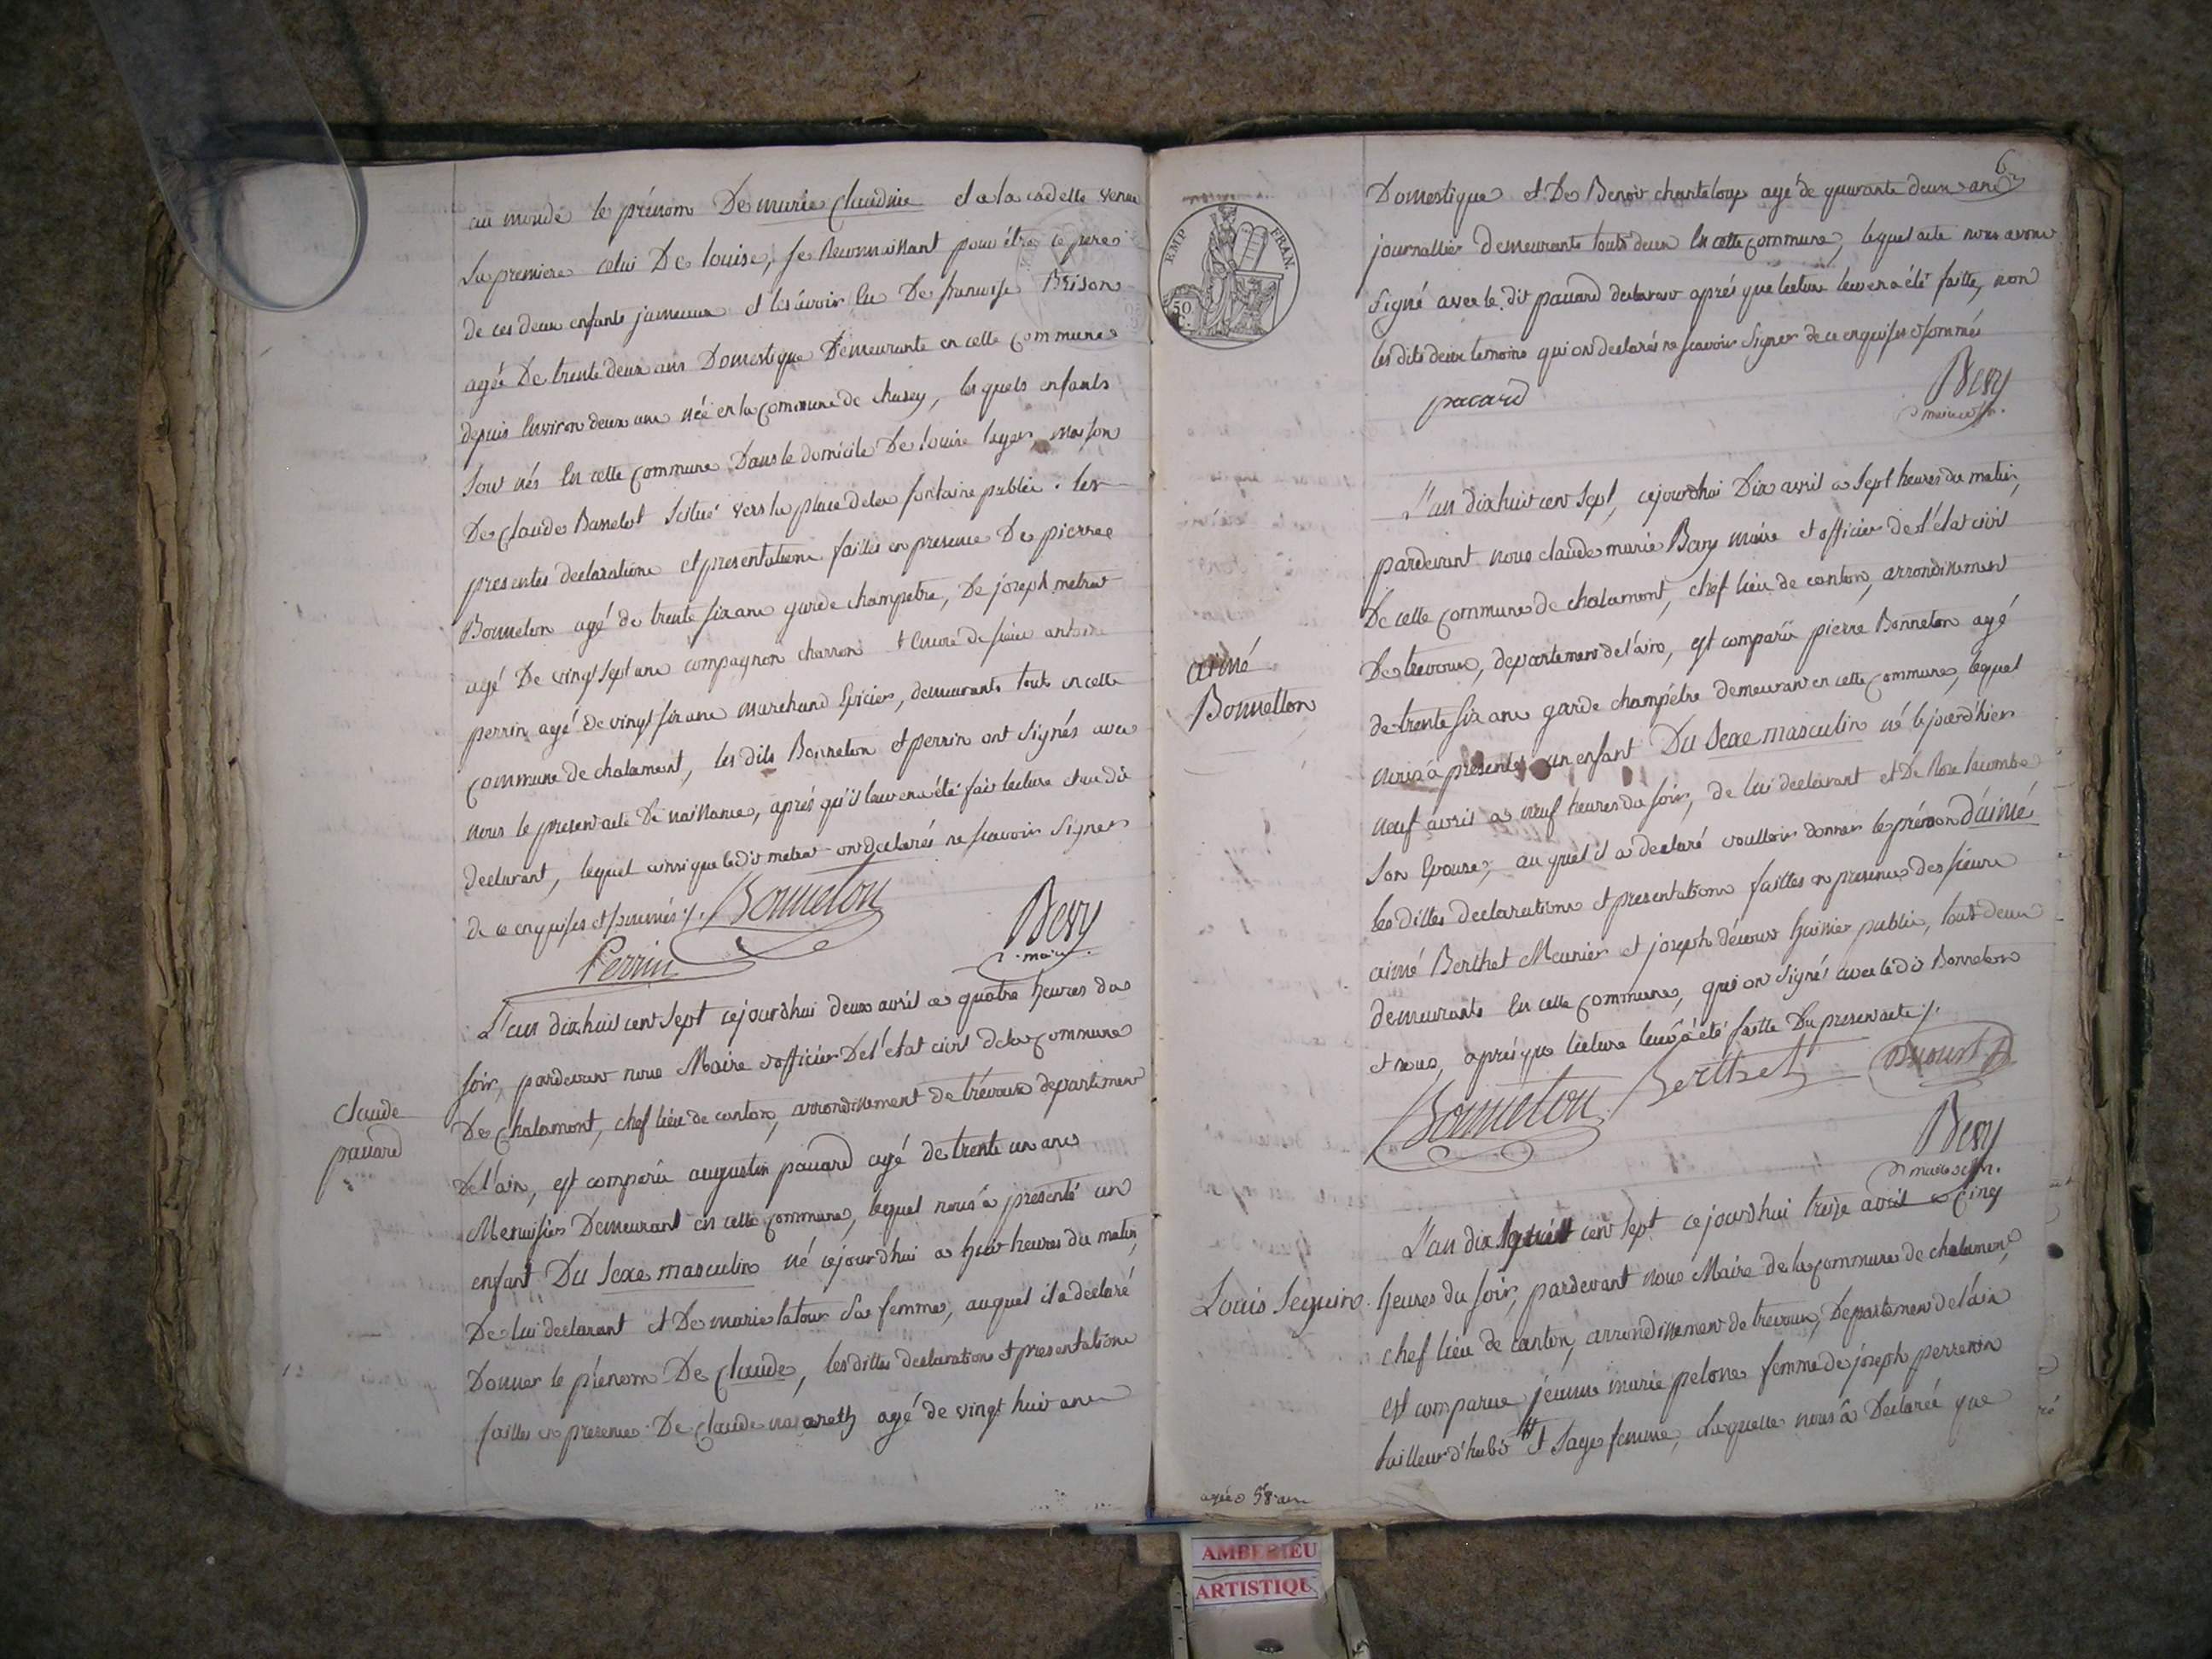 au monde le prénom De marie Claudine et a la cadette venue
La premiere celui De louise, se Reconnaissant pour être le pere
de ces deux enfants jumeaux et les avoir Eu De françoise Brison
agée De trente deux ans Domestique Demeurante en cette Commune
depuis Environ deux ans née en la Commune de chasey, les quels enfants
sont nés En cette Commune Dans le domicile De louise leger maison
De Claude Basselet Scitué vers la place de la fontaine public. les
presentes declarations et presentations faittes en presence De pierre
Bonneton agé de trente six ans garde champetre, De joseph metrat
agé De vingt sept ans compagnon charron + Encore de sieur antoine
perrin agé de vingt six ans marchand Epicier, demeurants touts en cette
Commune de chalamont, les dits Bonneton et perrin ont signés avec
nous le present acte De naissance, aprés qu'il leur en a été fait lecture et au dit
declarant, lequel ainsi que le dit metrat ont declarés ne scavoir signer
de ce enquises et sommés ./. Bonneton
Perrin
Bery
maire
L'an dix huit cent sept cejourdhui deux avril a quatre heures du
soir, pardevant nous Maire et officier De l'etat civil de la Commune
De Chalamont, chef lieu de canton, arrondissement de trévoux departement
De l'ain, est comparû augustin pacard agé de trente un ans
Menuisier Demeurant en cette commune, lequel nous â presenté un
enfant Du Sexe masculin né cejourdhui a huit heures du matin,
De lui declarant et De marie latour Sa femme, auquel il a declaré
Donner le prénom De Claude, les dittes declarations et presentations
faittes en presence De Claude nazareth agé de vingt huit ans
Claude
pacard
6
EMP. FRAN.
50 C.
Domestique et De Benoit chanteloup agé de quarante deux ans
journallier demeurants touts deux En cette commune, lequel acte nous avons
signé avec le dit pacard declarant aprés que lecture leur en a été faitte, non
les dits deux temoins qui ont declarés ne scavoir signer de ce enquises et sommés
pacard
Bery
maire
L'an dix huit cent sept, cejourdhui Dix avril a sept heures du matin,
pardevant nous claude marie Bery maire et officier de l'état civil
De cette commune de chalamont, chef lieu de canton, arrondissement
De trevoux, departement de l'ain, est comparû pierre Bonneton agé
de trente six ans garde champêtre demeurant en cette commune, lequel
nous â presenté un enfant Du Sexe masculin né le jour d'hier
neuf avril a neuf heures du soir, de lui declarant et De Rose lacombe
Son Epouse, au quel il a declaré voulloir donner le prénom D'aimé
les dittes declarations et presentations faittes en presence des sieurs
aimé Berthet Meunier et joseph décourt huissier public, tout deux
demeurants En cette Commune, qui ont signés avec le dit Bonneton
et nous, aprés que lecture leur â été faitte Du present acte ./.
Bonneton Berthet Decourt
Bery
maire
aimé
Bonnetton
L'an dix huit cent sept cejourdhui treize avril a Cinq
heures du soir, pardevant nous Maire de la commune de chalamont,
chef lieu de canton, arrondissement de trevoux, Departement de l'ain
est comparue jeanne marie pelone femme de joseph perrenin
tailleur d'habit # et Sage femme, Laquelle nous â Declarée que
Louis Seguin.
agée 58 ans
AMBERIEU
ARTISTIQU